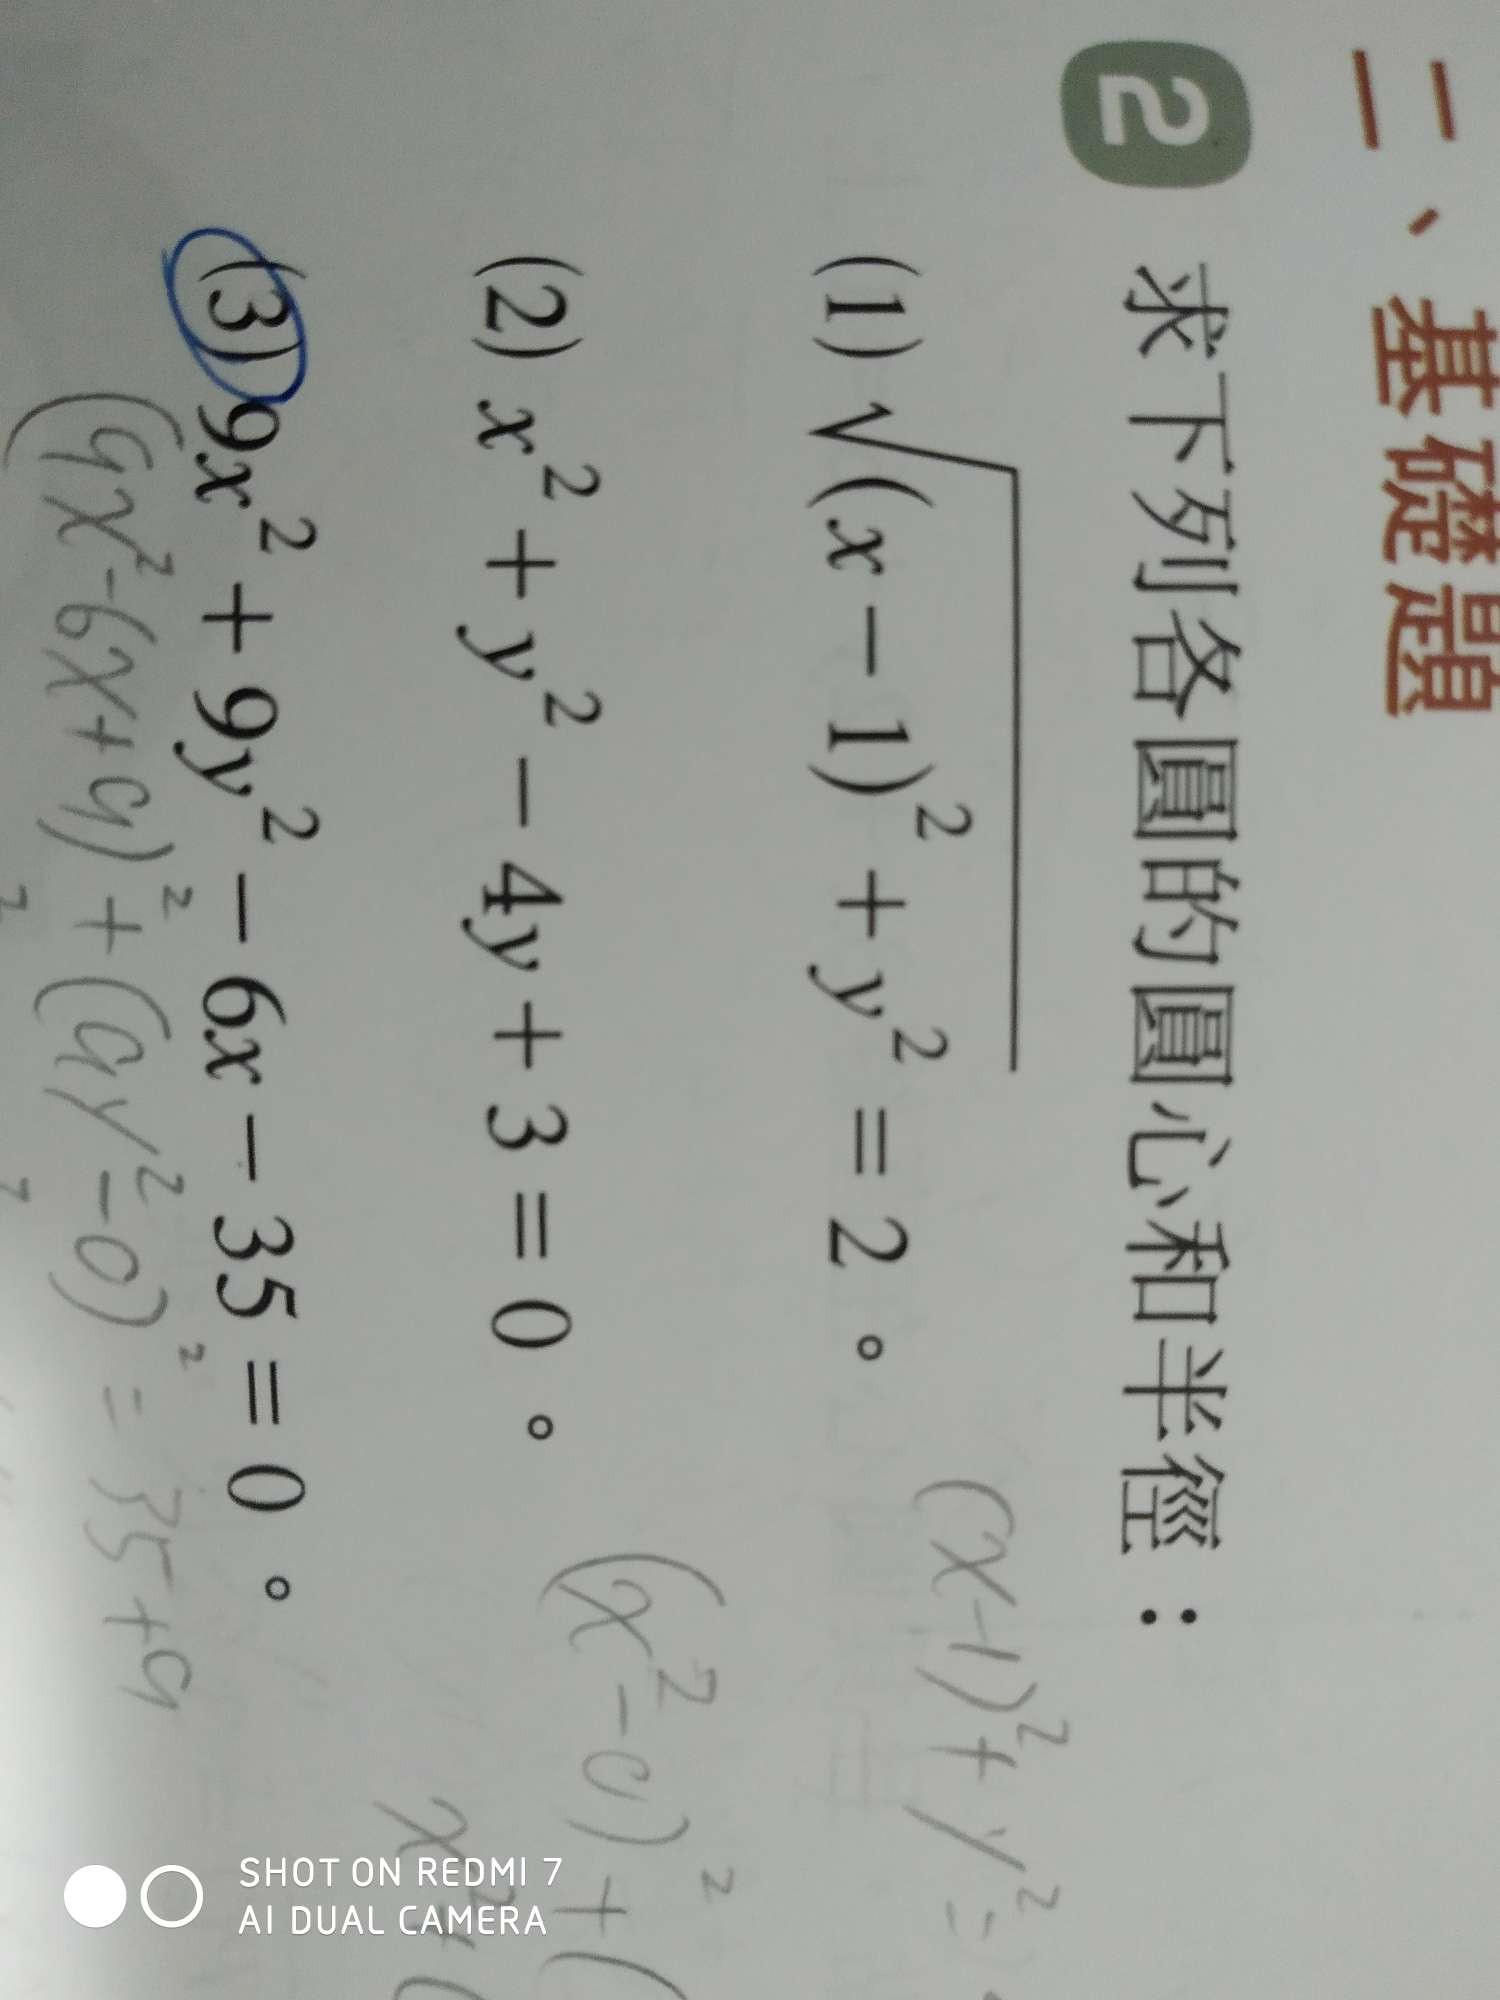 二、基礎題
2 求下列各圓的圓心和半徑：
(1) √(x − 1)² + y² = 2。
(x-1)² + y² =
(2) x² + y² − 4y + 3 = 0。
(x² - 0)² + (
x² + (
(3) 9x² + 9y² − 6x − 35 = 0。
(9x² - 6x + 9)² + (9y² - 0)² = 35 + 9
SHOT ON REDMI 7
AI DUAL CAMERA